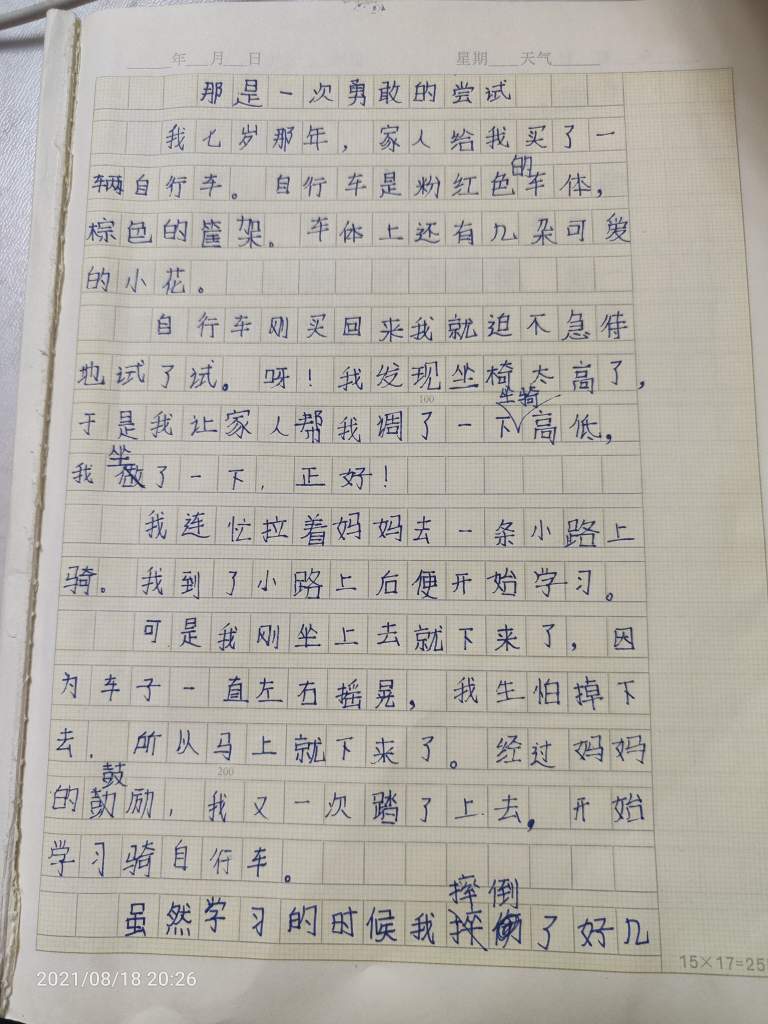 年 月 日 星期 天气
那是一次勇敢的尝试
我七岁那年，家人给我买了一
辆自行车。自行车是粉红色的车体，
棕色的筐架。车体上还有几朵可爱
的小花。
自行车刚买回来我就迫不急待
地试了试。呀！我发现坐椅太高了，
100
于是我让家人帮我调了一下坐骑高低，
我坐了一下，正好！
我连忙拉着妈妈去一条小路上
骑。我到了小路上后便开始学习。
可是我刚坐上去就下来了，因
为车子一直左右摇晃，我生怕掉下
去，所以马上就下来了。经过妈妈
200
的鼓励，我又一次踏了上去，开始
学习骑自行车。
虽然学习的时候我摔倒了好几
15×17=25
2021/08/18 20:26